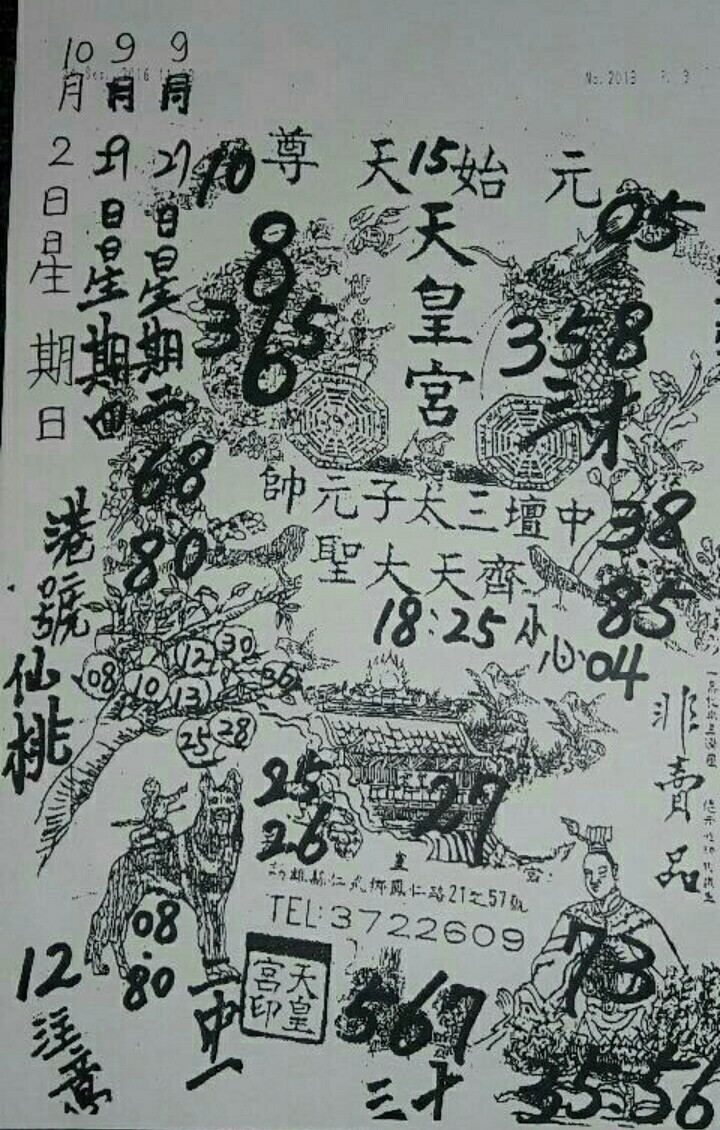 10月2日星期日
9月29日星期四
9月27日星期二
No.2013 P. 3
元始天尊
10
15
05
天皇宮
8
9
6
3
5
358
三才
68
80
38
85
04
中壇三太子元帥
齊天大聖
18:25小心
港號
仙桃
08
10
12
13
30
36
25
28
25
26
27
非賣品
鳳仁路21之57號
TEL:3722609
08
80
12
注意
一中一
天皇宮印
567
三十
73
35.56